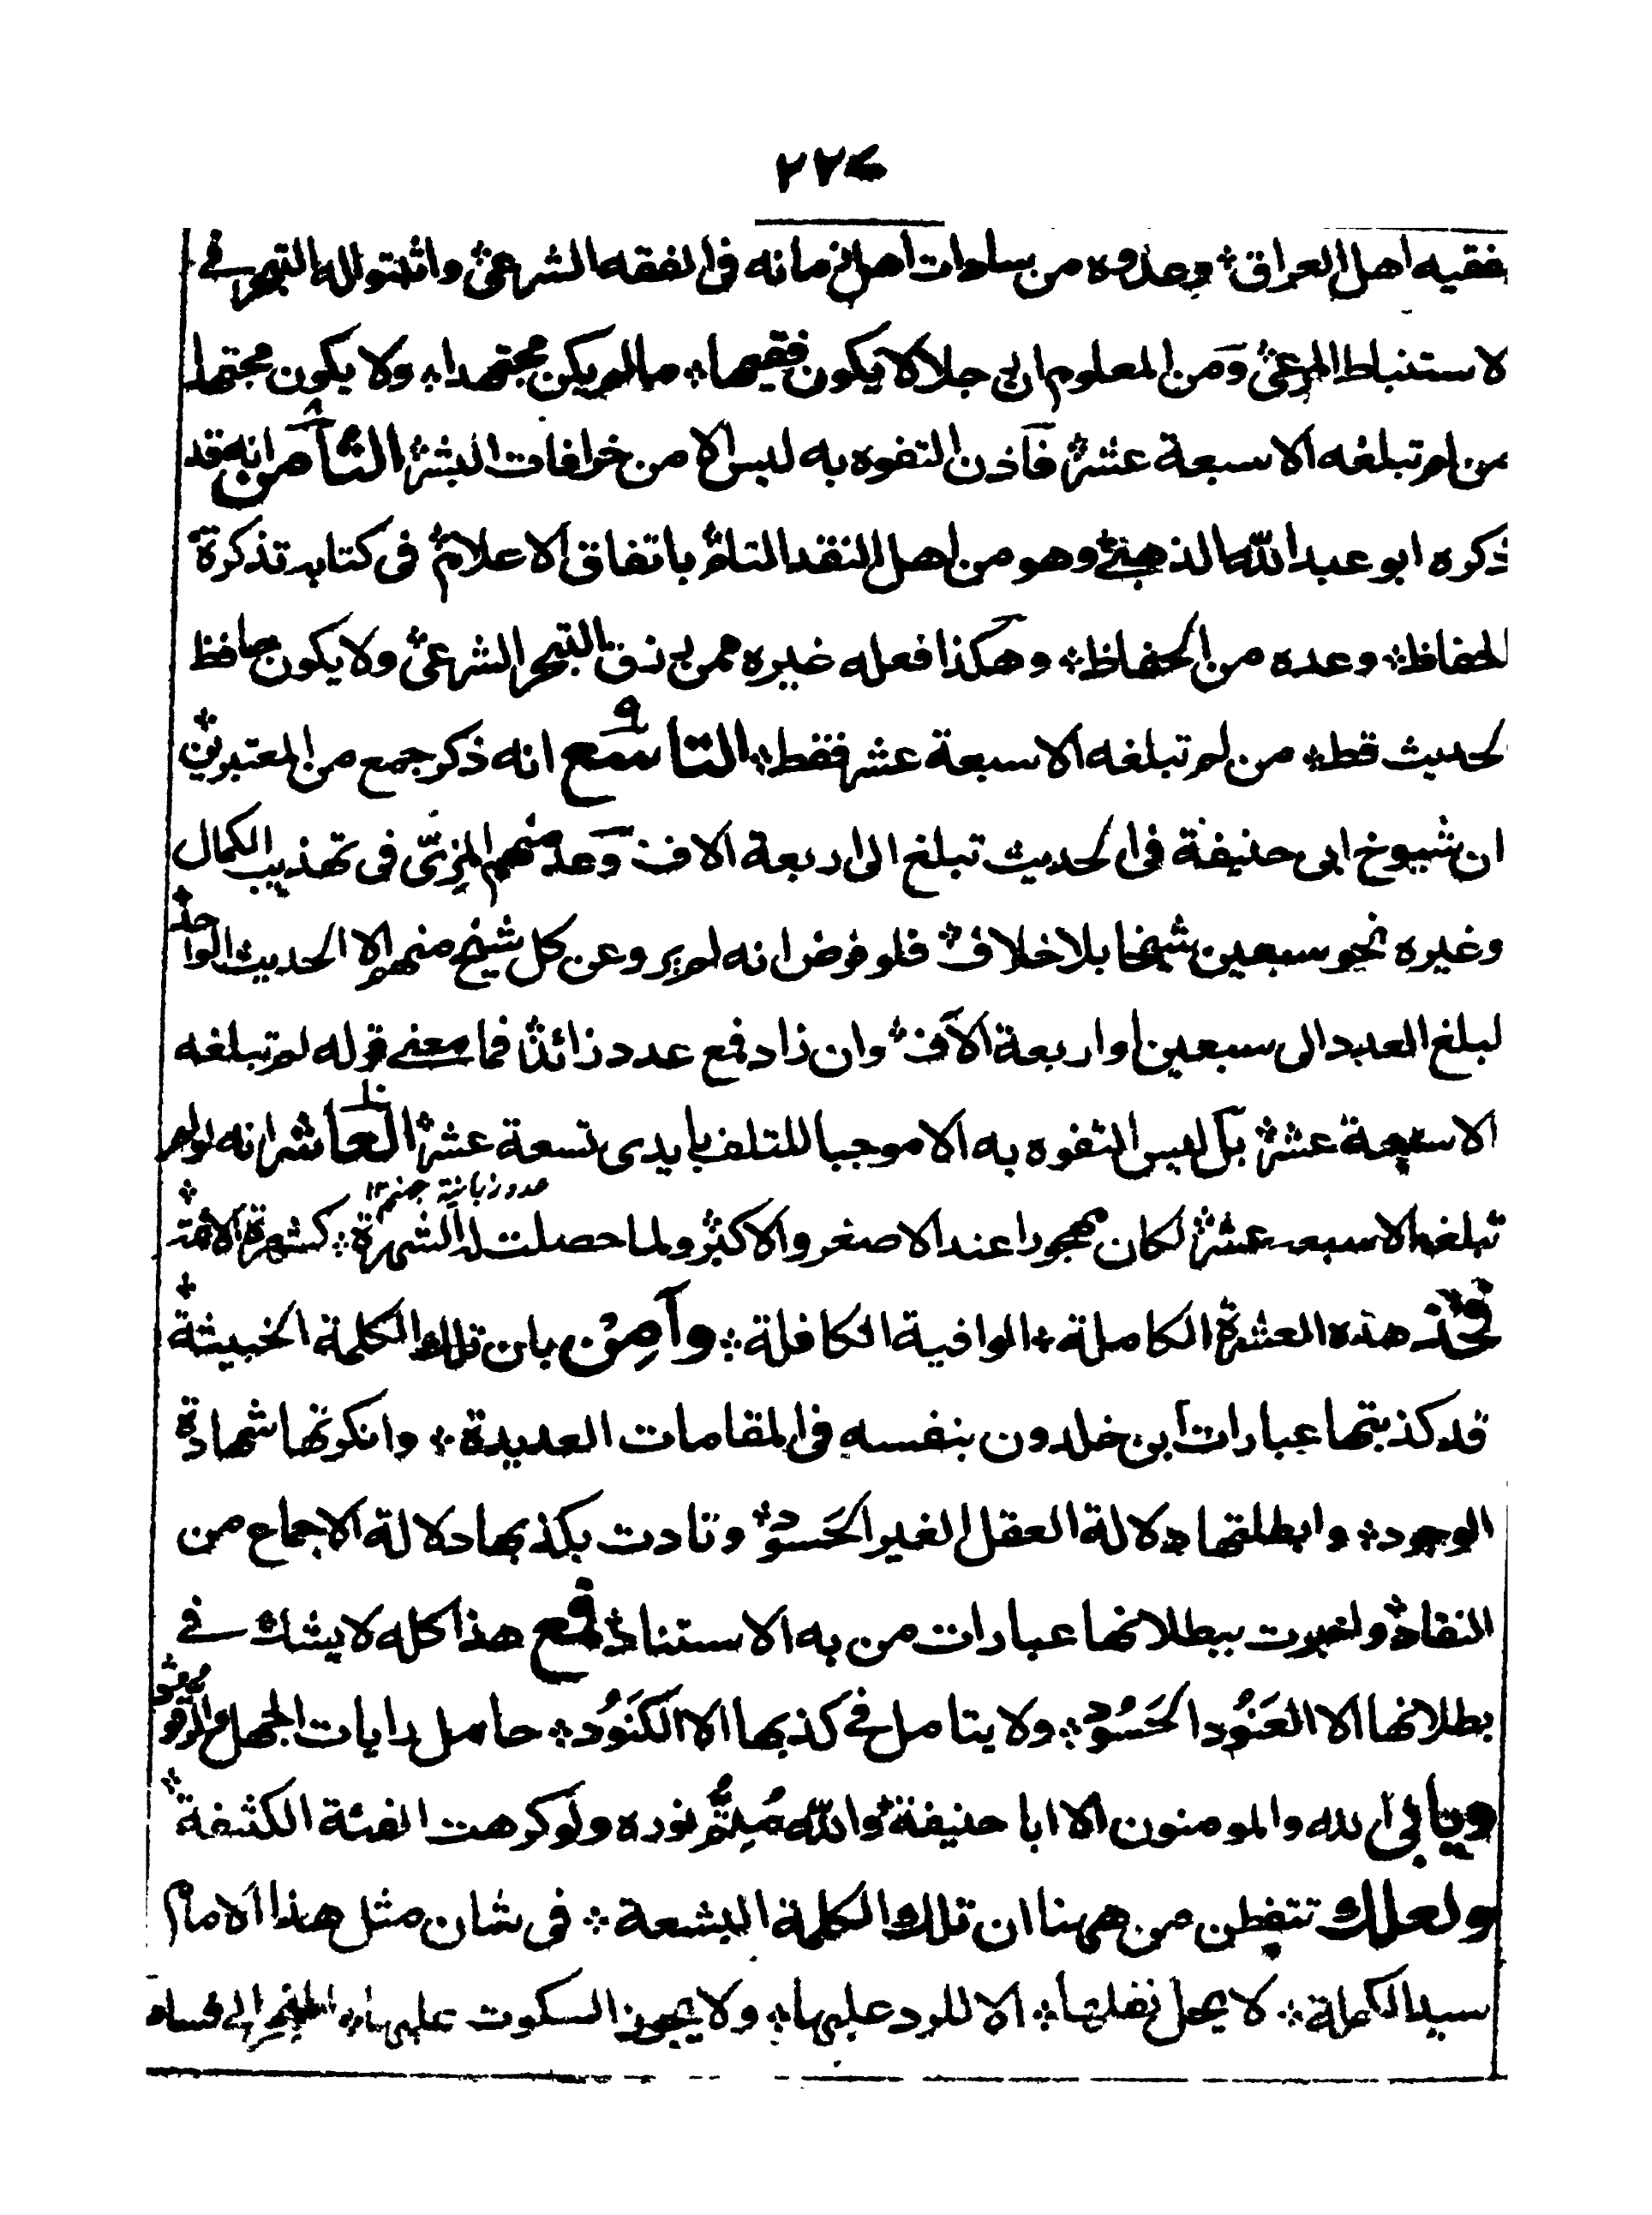 ٢٢٧
فقيه اهل العراق وعدوه من سادات اهل زمانه فى الفقه الشرعى واثبتوا له التبحر فى
لاستنباط المرعى ومن المعلوم ان رجلا لا يكون فقيها ما لم يكن مجتهدا ولا يكون مجتهدا
من لم تبلغه الا سبعة عشر فاذن التفوه به ليس الا من خرافات البشر الثامن ٨ انه قد
ذكره ابو عبد الله الذهبى وهو من اهل النقد التام باتفاق الاعلام فى كتابه تذكرة
لحفاظ وعده من الحفاظ وهكذا فعله غيره ممن رزق التبحر الشرعى ولا يكون حافظ
لحديث قط من لم تبلغه الا سبعة عشر فقط التاسع ٩ انه ذكر جمع من المعتبرين
ان شيوخ ابى حنيفة فى الحديث تبلغ الى اربعة الاف وعد منهم المزىّ فى تهذيب الكمال
وغيره نحو سبعين شيخا بلا خلاف فلو فرض انه لم يرو عن كل شيخ منهم الا الحديث الواحد
لبلغ العدد الى سبعين او اربعة الآف وان زاد فمع عدد زائد فما معنى قوله لم تبلغه
الا سبعة عشر بل ليس التفوه به الا موجبا للتلف بايدى تسعة عشر العاشر انه لو لم
عدد زبانية جهنم ١٢
تبلغه الا سبعة عشر لكان مهجورا عند الاصغر والاكبر ولما حصلت له الشهرة كشهرة الائمة
فخذ هذه العشرة الكاملة الوافية الكافلة وآمِنْ بان تلك الكلمة الخبيثة
قد كذبتها عبارات ابن خلدون بنفسه فى المقامات العديدة وانكرتها شهادة
الوجود وابطلتها دلالة العقل الغير الحَسود ونادت بكذبها دلالة الاجماع من
النقاد واخبرت ببطلانها عبارات من به الاستناد فمع هذا كله لا يشك فى
بطلانها الا العَنُود الحَسُود ولا يتامل فى كذبها الا الكَنَوُد حامل رايات الجهل
ويابى الله والمومنون الا ابا حنيفة والله مُتِمُّ نوره ولو كرهت الفئة الكثفة
ولعلك تتفطن من ههنا ان تلك الكلمة البشعة فى شان مثل هذا الامام
سيد الكملة لا يحل نقلها الا للرد عليها ولا يجوز السكوت عليها المنجر الى فساد